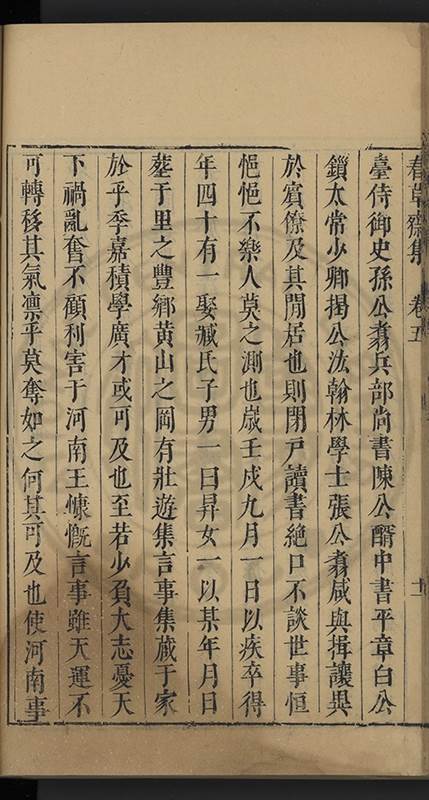 春草齋集 卷五 十
臺侍御史孫公翥兵部尚書陳公䤄中書平章白公
鎖太常少卿揭公汯翰林學士張公翥咸與揖讓異
於賓僚及其閒居也則閉戸讀書絕口不談世事恒
悒悒不樂人莫之測也歲壬戌九月一日以疾卒得
年四十有一娶臧氏子男一曰昇女一以某年月日
塟于里之豐鄉黃山之岡有壯遊集言事集藏于家
於乎季嘉積學廣才或可及也至若少負大志憂天
下禍亂奮不顧利害于河南王慷慨言事雖天運不
可轉移其氣凛乎莫奪如之何其可及也使河南事